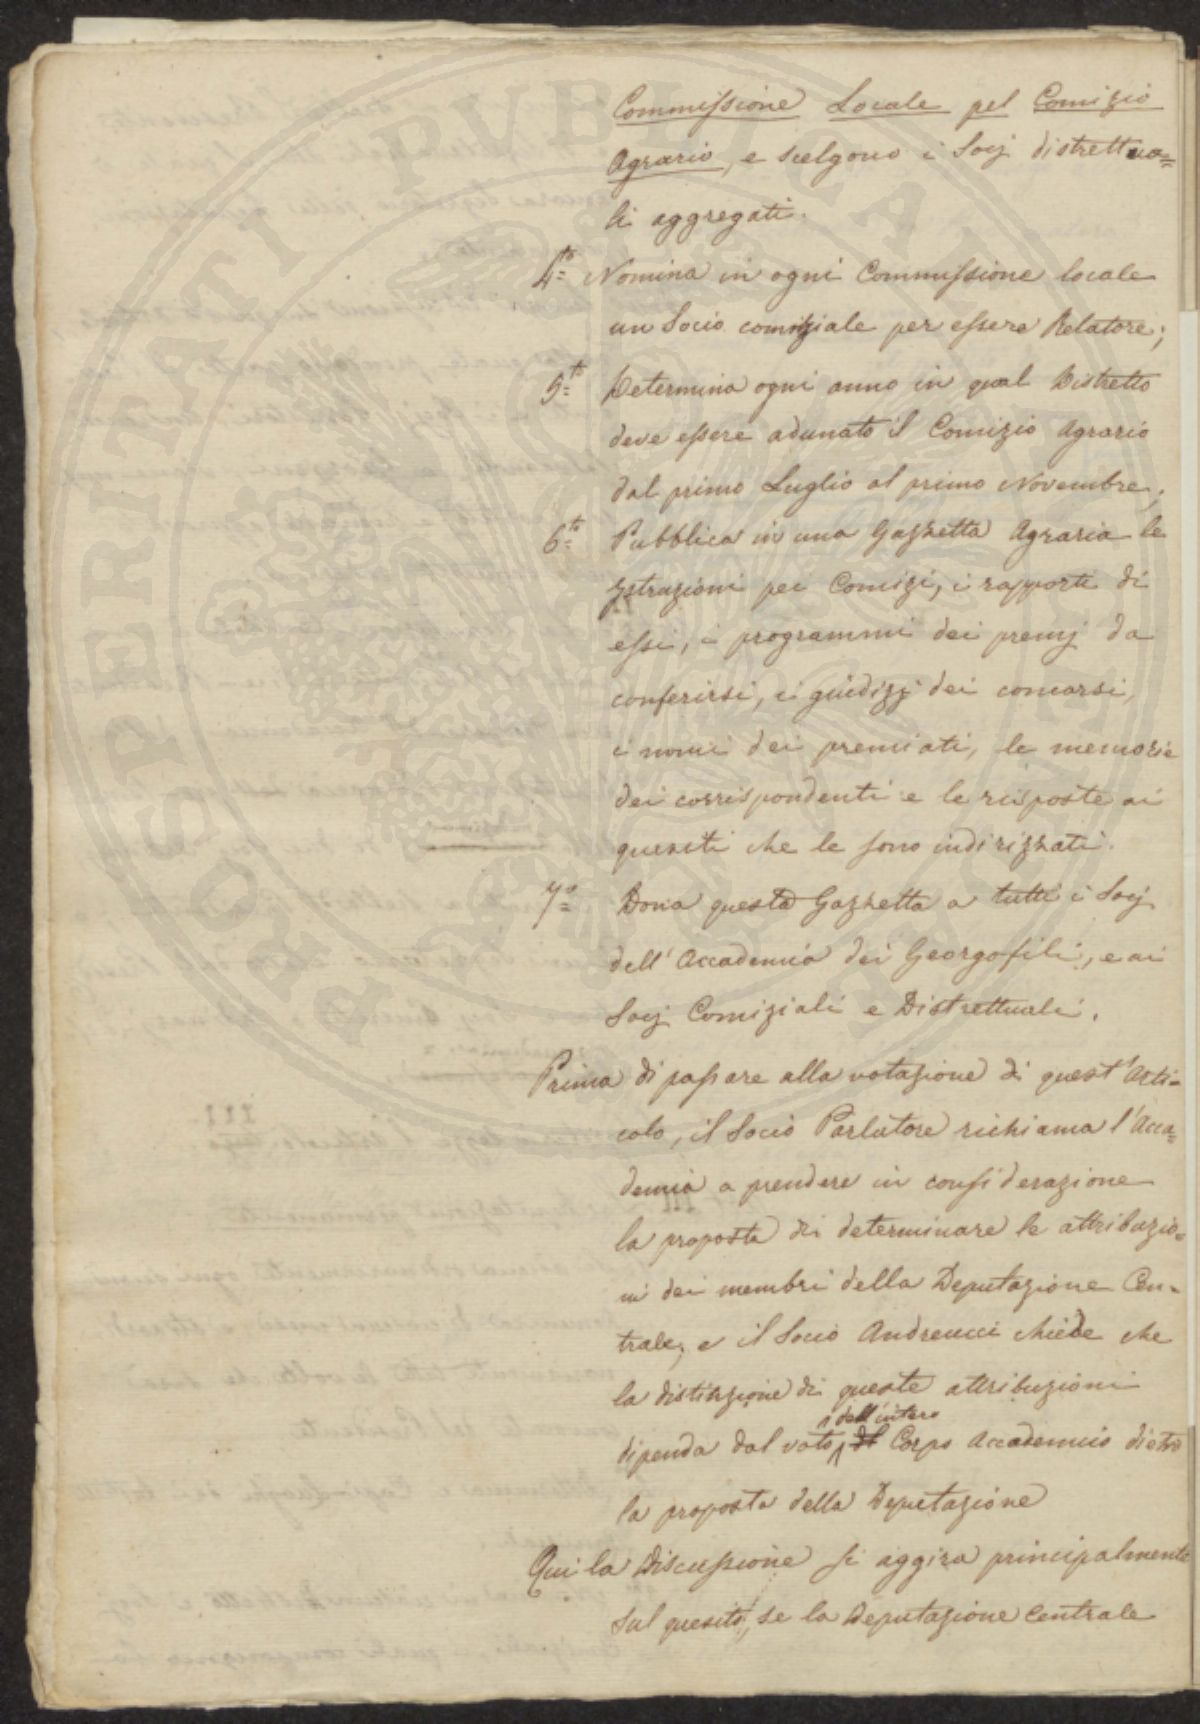 Commissione Locale pel Comizio
Agrario, e scelgono i Socj distrettua=
li aggregati.
4.to Nomina in ogni Commissione locale
un Socio comiziale per essere Relatore;
5.to Determina ogni anno in qual Distretto
deve essere adunato il Comizio Agrario
dal primo Luglio al primo Novembre;
6.to Pubblica in una Gazzetta Agraria le
Istruzioni pei Comizi, i rapporti di
essi, i programmi dei premj da
conferirsi, i giudizj dei concorsi,
i nomi dei premiati, le memorie
dei corrispondenti e le risposte ai
quesiti che le sono indirizzati.
7.o Dona questa Gazzetta a tutti i Socj
dell'Accademia dei Georgofili, e ai
Socj Comiziali e Distrettuali.
Prima di passare alla votazione di quest'Arti=
colo, il Socio Parlatore richiama l'Acca=
demia a prendere in considerazione
la proposta di determinare le attribuzio=
ni dei membri della Deputazione Cen=
trale, e il Socio Andreucci chiede che
la distinzione di queste attribuzioni
dell'intero
dipenda dal voto del Corpo Accademico dietro
la proposta della Deputazione
Qui la Discussione si aggira principalmente
sul quesito, se la Deputazione Centrale
PROSPERITATI PUBLICAE AUGENDAE